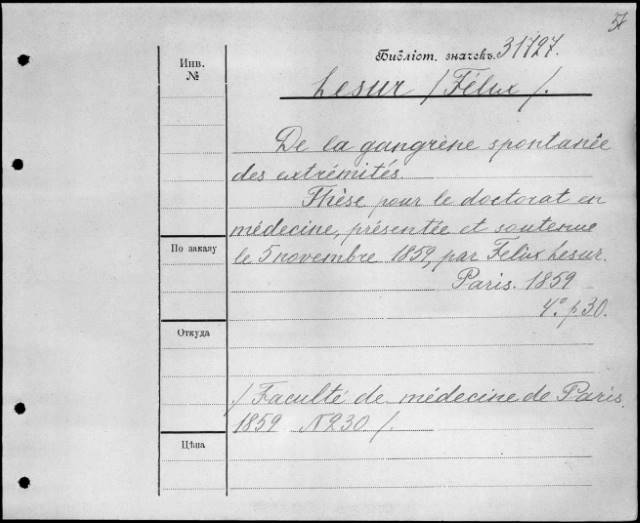 57
Библіот. значекъ. 31727.
Инв.
№
Lesur /Félix/.
De la gangrène spontanée
des extrémités.
Thèse pour le doctorat en
médecine, présentée et soutenue
le 5 novembre 1859, par Félix Lesur.
По заказу
Paris. 1859
4.° p 30.
Откуда
/Faculté de médecine de Paris.
1859 N 230/.
Цѣна